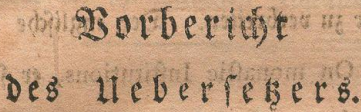 Vorbericht
des Ueberſetzers.